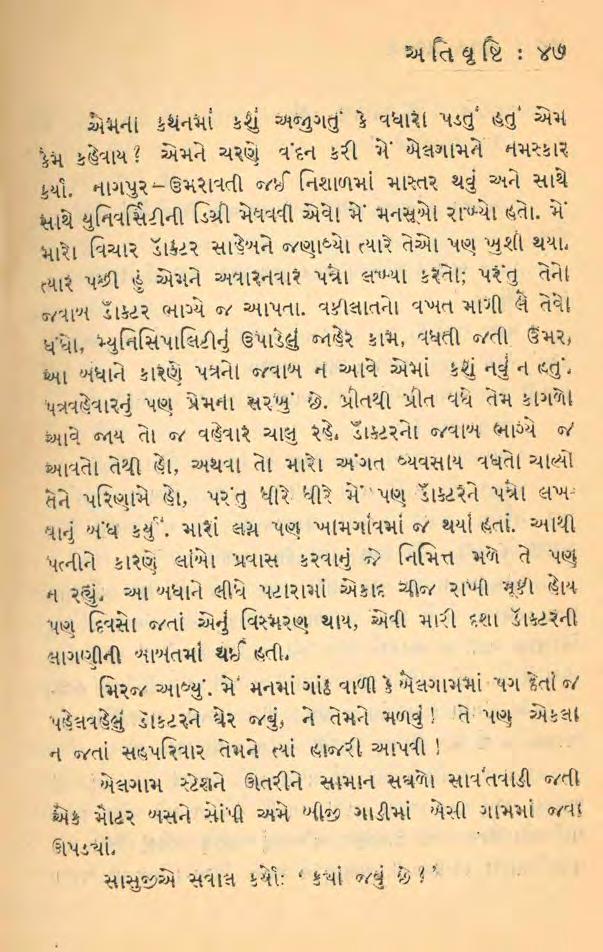 અતિવૃષ્ટિ : ૪૭
એમના કથનમાં કશું અજુગતું કે વધારે પડતું હતું એમ
કેમ કહેવાય? એમને ચરણે વંદન કરી મેં બેલગામને નમસ્કાર
કર્યાં. નાગપુર–ઉમરાવતી જઈ નિશાળમાં માસ્તર થવું અને સાથે
સાથે યુનિવર્સિટીની ડિગ્રી મેળવવી એવો મેં મનસૂબો રાખ્યો હતો. મેં
મારો વિચાર ડૉક્ટર સાહેબને જણાવ્યો ત્યારે તેઓ પણ ખુશી થયા.
ત્યાર પછી હું એમને અવારનવાર પત્રો લખ્યા કરતો; પરંતુ તેનો
જવાબ ડૉક્ટર ભાગ્યે જ આપતા. વકીલાતનો વખત માગી લે તેવો
ધંધો, મ્યુનિસિપાલિટીનું ઉપાડેલું જાહેર કામ, વધતી જતી ઉંમર,
આ બધાને કારણે પત્રનો જવાબ ન આવે એમાં કશું નવું ન હતું.
પત્રવહેવારનું પણ પ્રેમના સરખું છે. પ્રીતથી પ્રીત વધે તેમ કાગળો
આવે જાય તો જ વહેવાર ચાલુ રહે. ડૉક્ટરનો જવાબ ભાગ્યે જ
આવતો તેથી હો, અથવા તો મારો અંગત વ્યવસાય વધતો ચાલ્યો
તેને પરિણામે હો, પરંતુ ધીરે ધીરે મેં પણ ડૉક્ટરને પત્રો લખ-
વાનું બંધ કર્યું. મારાં લગ્ન પણ ખામગાંવમાં જ થયાં હતાં. આથી
પત્નીને કારણે લાંબો પ્રવાસ કરવાનું જે નિમિત્ત મળે તે પણ
ન રહ્યું. આ બધાને લીધે પટારામાં એકાદ ચીજ રાખી મૂકી હોય
પણ દિવસો જતાં એનું વિસ્મરણ થાય, એવી મારી દશા ડૉક્ટરની
લાગણીની બાબતમાં થઈ હતી.
મિરજ આવ્યું. મેં મનમાં ગાંઠ વાળી કે બેલગામમાં પગ દેતાં જ
પહેલવહેલું ડૉકટરને ઘેર જવું, ને તેમને મળવું! તે પણ એકલા
ન જતાં સહપરિવાર તેમને ત્યાં હાજરી આપવી!
બેલગામ સ્ટેશને ઊતરીને સામાન સઘળો સાવંતવાડી જતી
એક મોટર બસને સોંપી અમે બીજી ગાડીમાં બેસી ગામમાં જવા
ઊપડ્યાં.
સાસુજીએ સવાલ કર્યો: ‘કયાં જવું છે?’